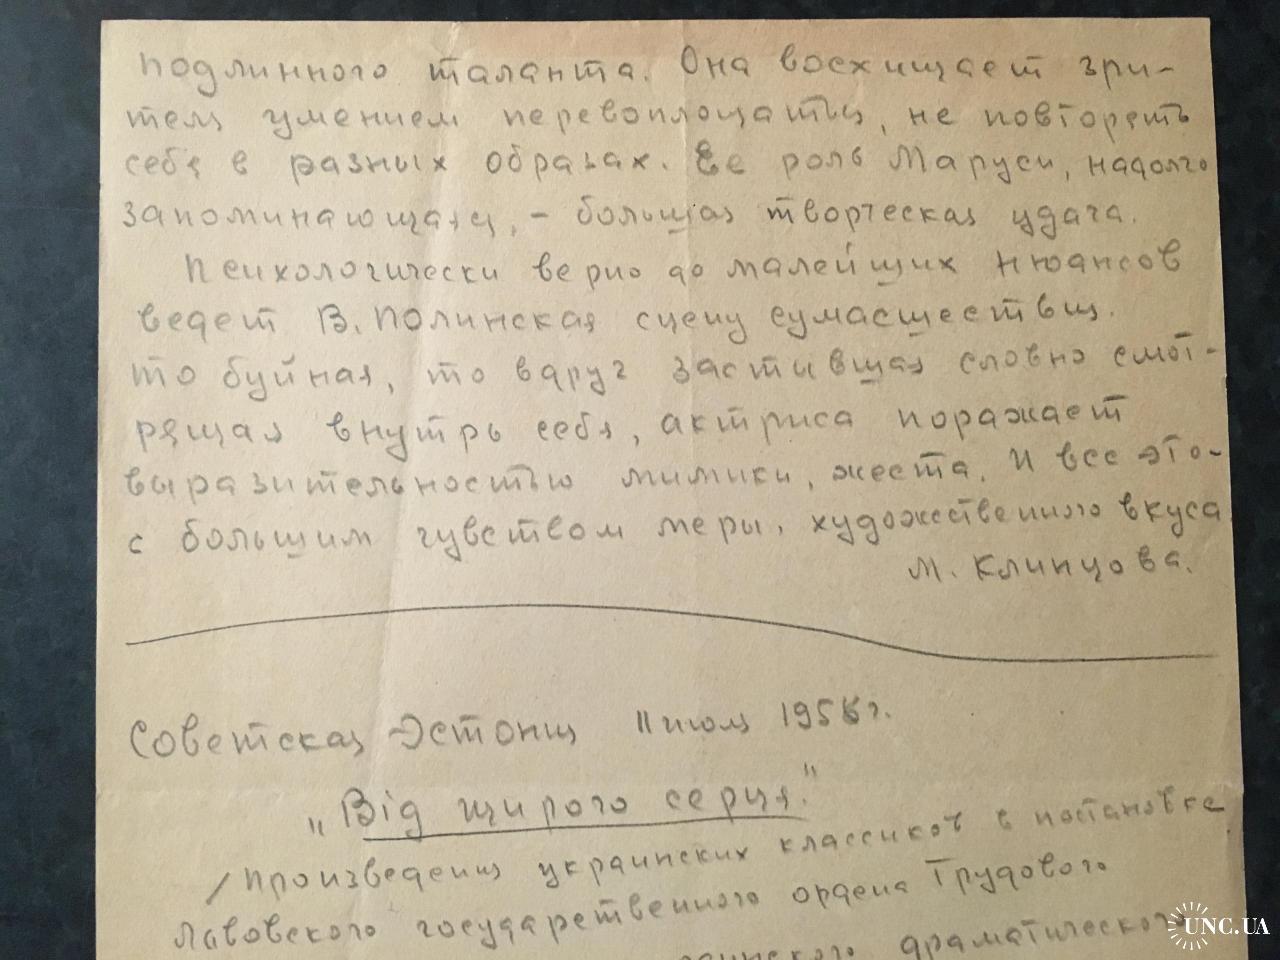 подлинного таланта. Она восхищает зри-
теля умением перевоплощаться, не повторять
себя в разных образах. Ее роль Маруси, надолго
запоминающаяся, - большая творческая удача.
Психологически верно до малейших нюансов
ведет В. Полинская сцену сумасшествия.
То буйная, то вдруг застывшая словно смот-
рящая внутрь себя, актриса поражает
выразительностью мимики, жеста. И все это-
с большим чувством меры, художественного вкуса
М. Клинцова.
Советская Эстония 11 июля 195 г.
"Від щирого серця."
/Произведения украинских классиков в постановке
Львовского государственного ордена Трудового
драматического
UNC.UA